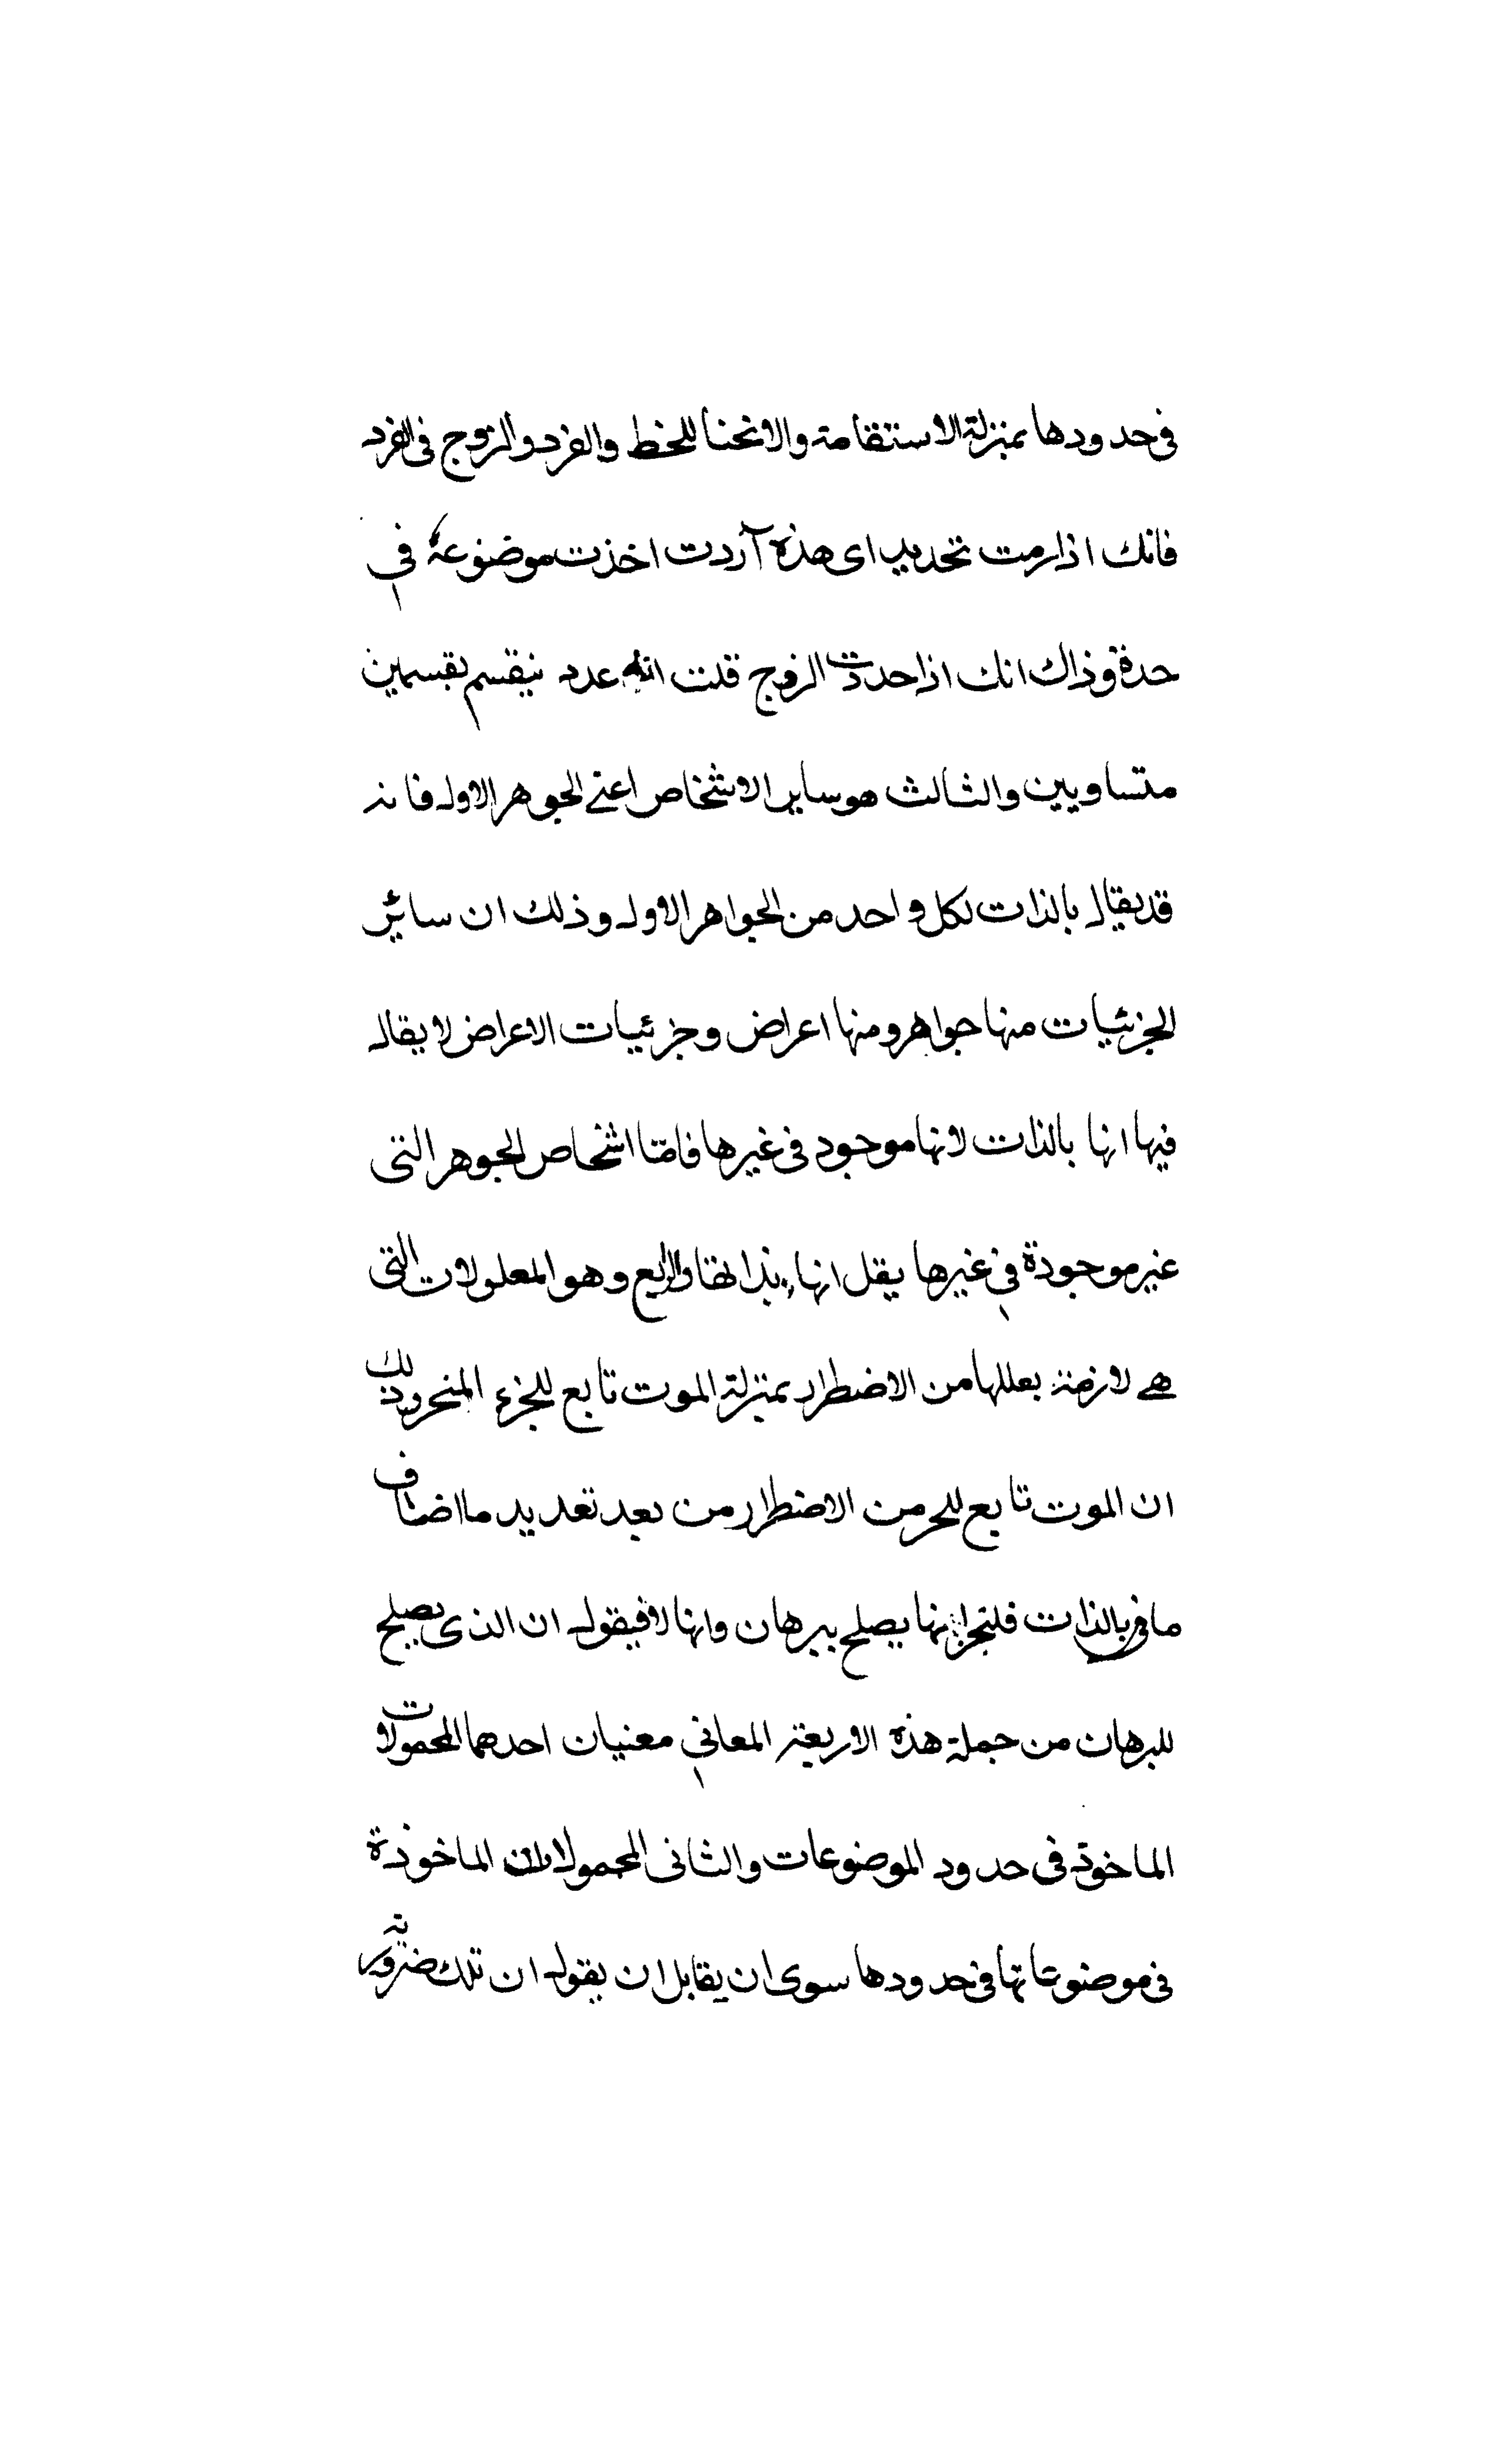 في حدودها بمنزلة الاستقامة والانحنا للخط والفرد والزوج في الفرد
فانك اذا رمت تحديد اى هذه آردت اخذت موضوعه في
حدة وذاك انك اذا حددت الزوج قلت انه عدد ينقسم بقسمين
متساويين والثالث هو ساير الاشخاص اعنى الجوهر الاول فانه
قد يقال بالذات لكل واحد من الجواهر الاول وذلك ان سائر
الجزئيات منها جواهر ومنها اعراض وجزئيات الاعراض لا يقال
فيها انها بالذات لانها موجود في غيرها فامّا اشخاص الجوهر التى
غير موجودة في غيرها يقل انها بذاتها والرابع وهو المعلولات التى
هي لازمة بعللها من الاضطرار بمنزلة الموت تابع للجزء المنحر وذلك
ان الموت تابع للحر من الاضطرار من بعد تعديد ما اضاف
ما في بالذات فلنجز ايها يصلح ببرهان وايها لا فيقول ان الذى يصلح
للبرهان من جملة هذه الاربعة المعاني معنيان احدهما المحمولات
الماخوذ في حدود الموضوعات والثانى المحمولات الماخوذة
في موضوعاتها في حدودها سوى ان يقابل ان يقول ان تلك ضرورية